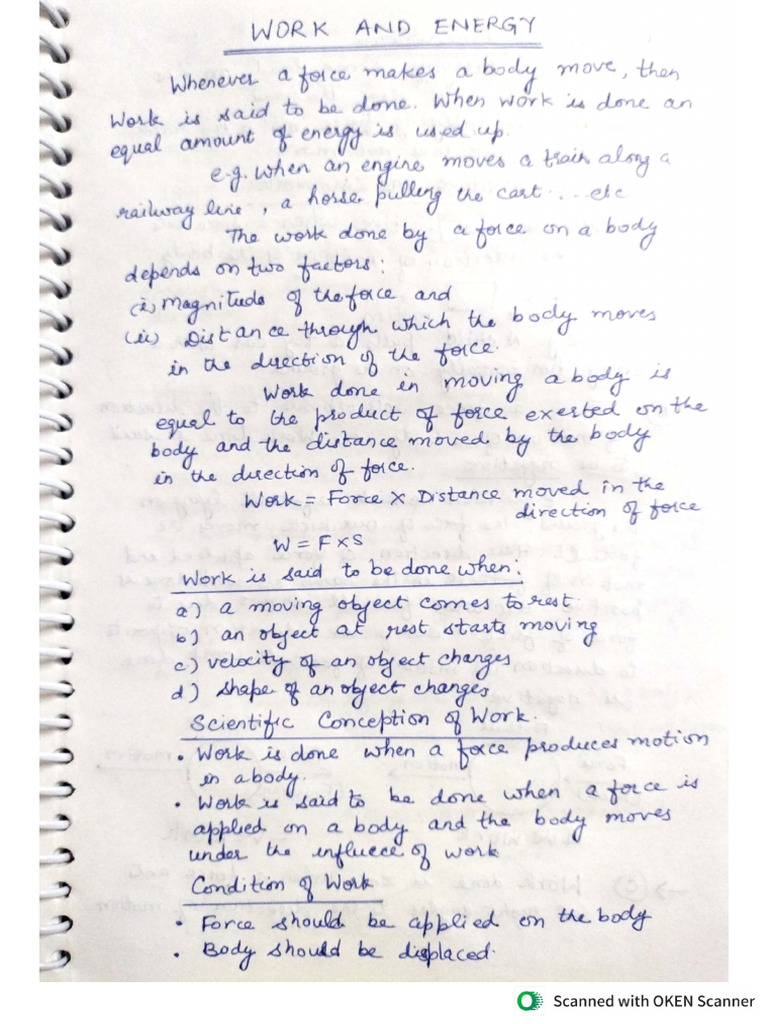 WORK AND ENERGY
Whenever a force makes a body move, then
Work is said to be done. When work is done an
equal amount of energy is used up.
e.g. when an engine moves a train along a
railway line, a horse pulling the cart... etc
The work done by a force on a body
depends on two factors:
(i) magnitude of the force and
(ii) Distance through which the body moves
in the direction of the force.
Work done in moving a body is
equal to the product of force exerted on the
body and the distance moved by the body
in the direction of force.
Work = Force × Distance moved in the
direction of force
W = F × S
Work is said to be done when:
a) a moving object comes to rest.
b) an object at rest starts moving
c) velocity of an object changes
d) shape of an object changes
Scientific Conception of Work.
• Work is done when a force produces motion
in a body.
• Work is said to be done when a force is
applied on a body and the body moves
under the influece of work
Condition of Work
• Force should be applied on the body
• Body should be displaced.
Scanned with OKEN Scanner